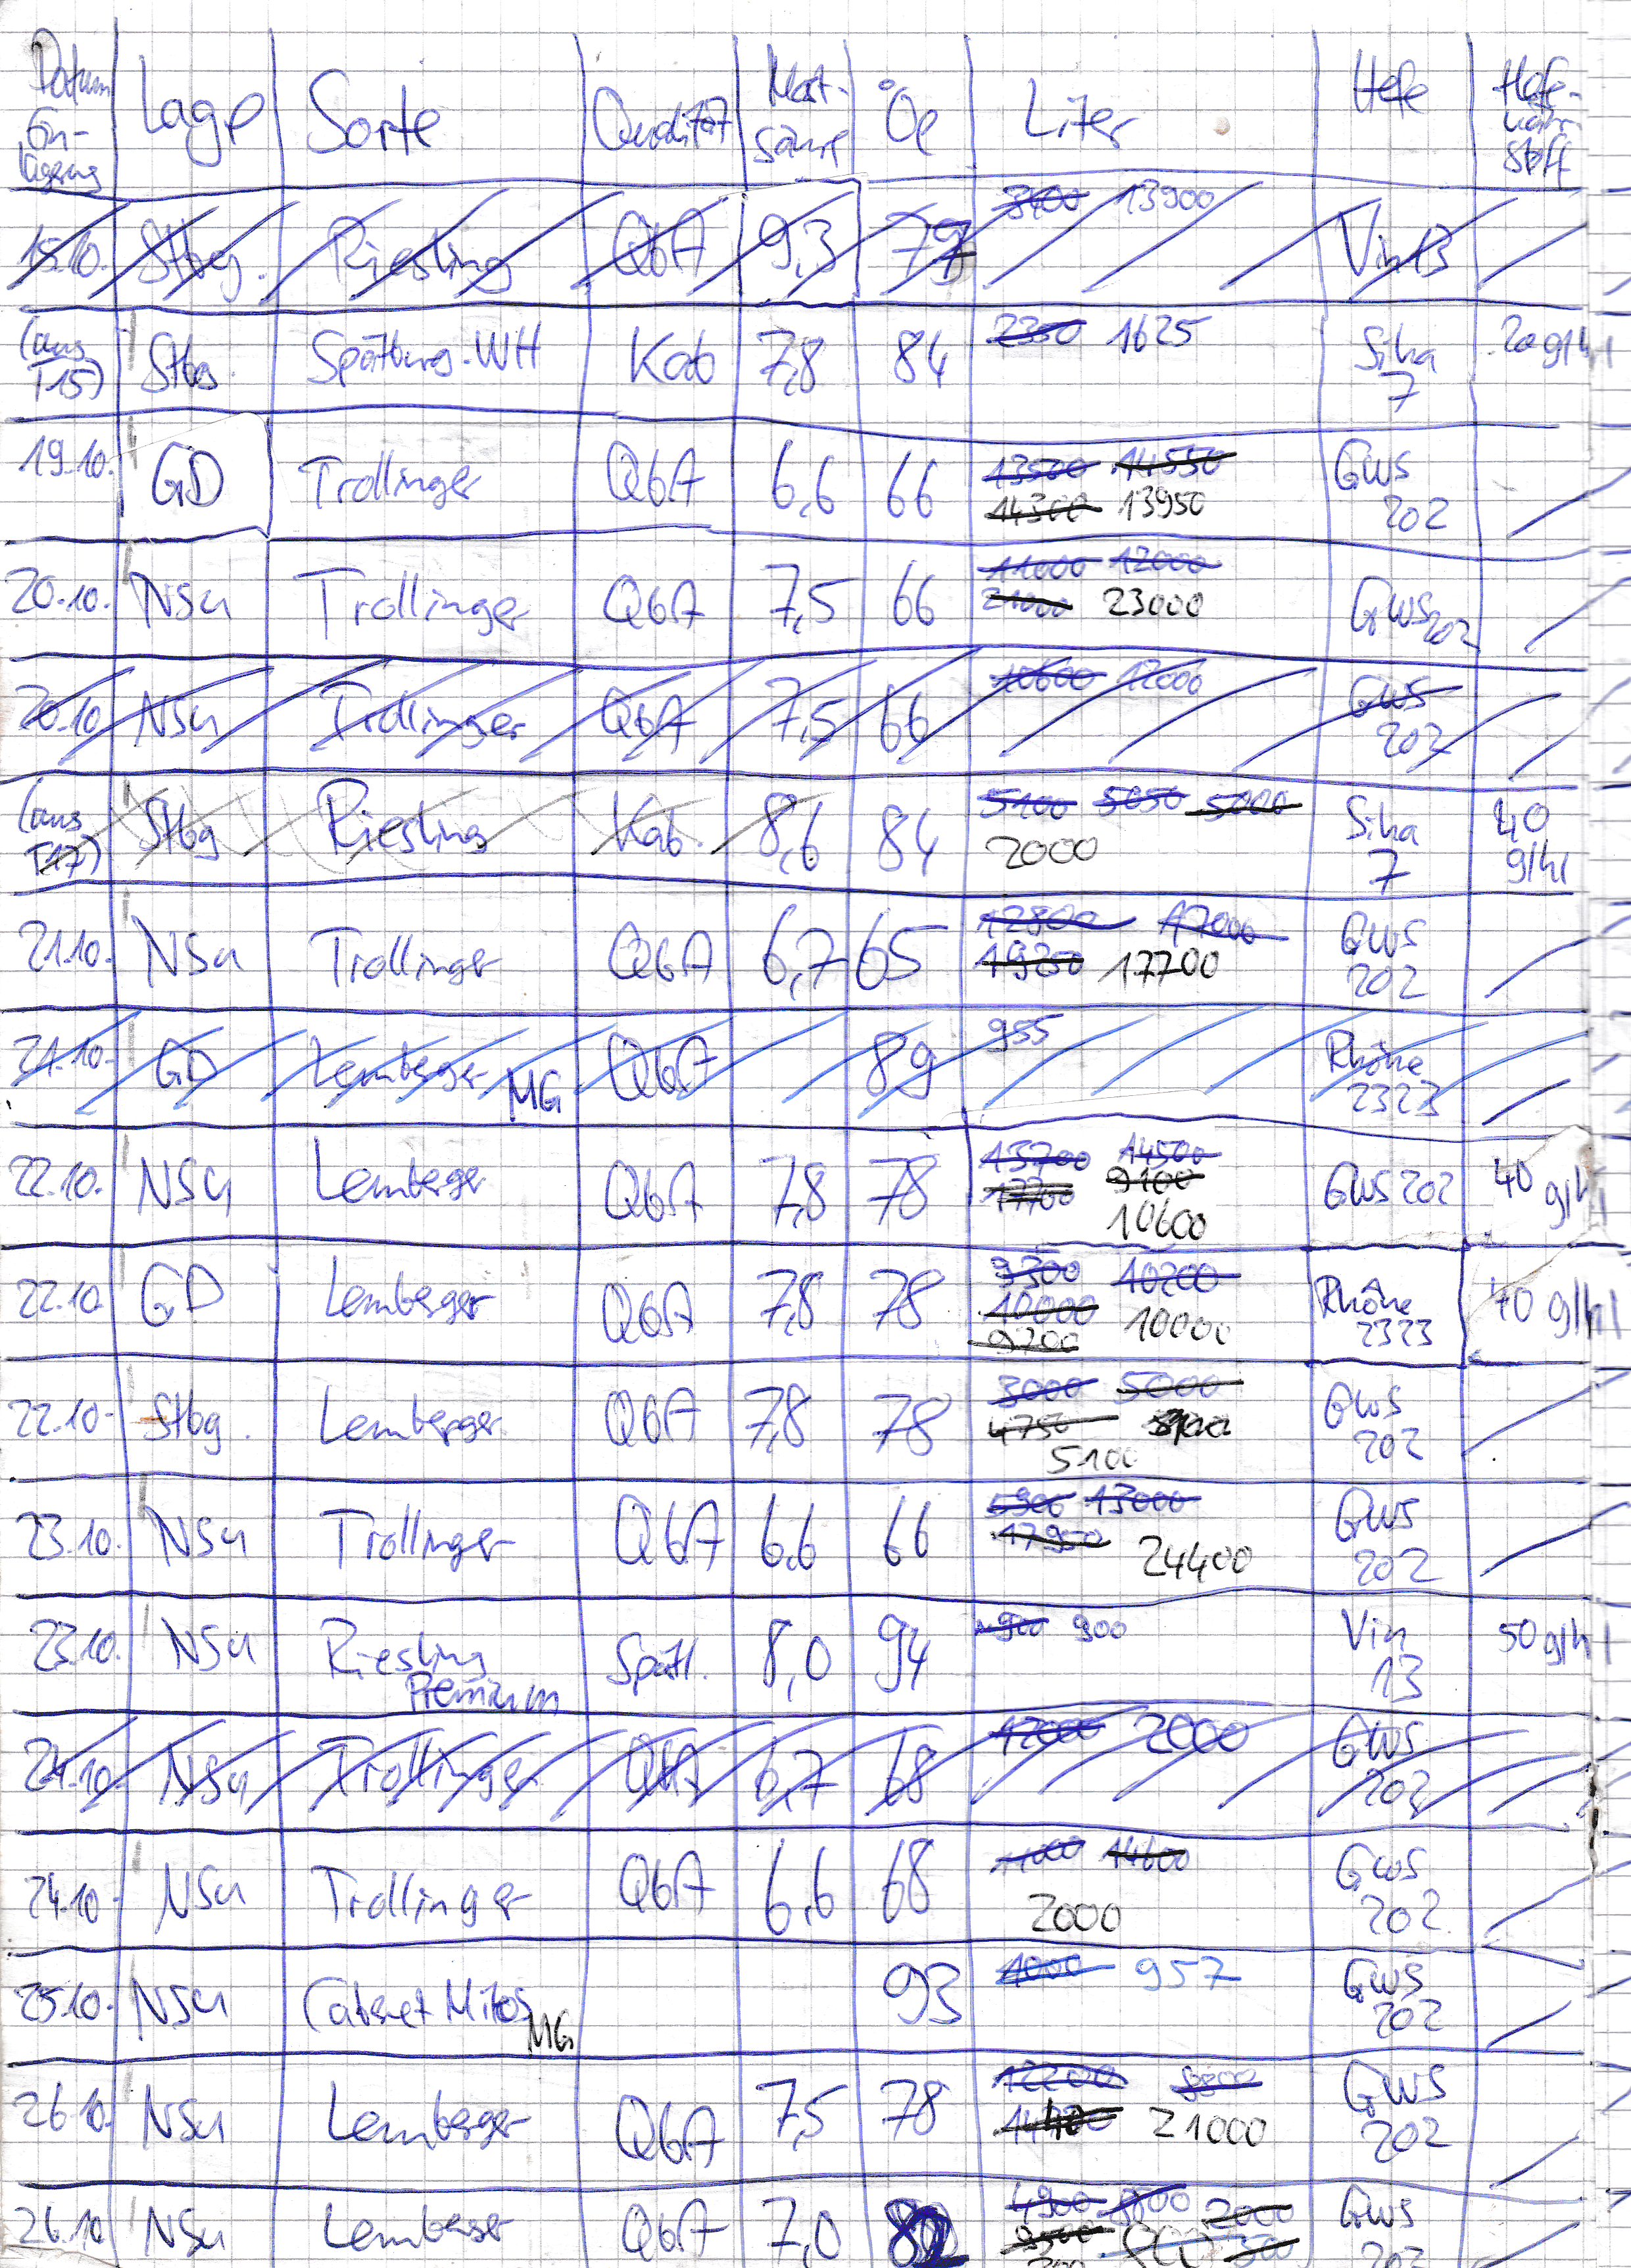 Datum Ein- lagerung Lage Sorte Qualität Most- säure °Oe Liter Hefe Hefe- nähr- stoff
15.10. Stbg. Riesling QbA 9,3 79 3400 13900 Vin 13
(aus T15) Stbg. Spätburg. WH Kab 7,8 84 2350 1625 Siha 7 20 g/hl
19.10. GD Trollinger QbA 6,6 66 13500 14550 14300 13950 GWS 202
20.10. NSu Trollinger QbA 7,5 66 11000 12000 21000 23000 GWS 202
20.10. NSu Trollinger QbA 7,5 66 10600 12000 GWS 202
(aus T17) Stbg Riesling Kab. 8,6 84 5100 5050 5000 2000 Siha 7 40 g/hl
21.10. NSu Trollinger QbA 6,7 65 12800 17000 19200 17700 GWS 202
21.10. GD Lemberger MG QbA 89 955 Rhône 2323
22.10. NSu Lemberger QbA 7,8 78 13700 14500 17700 9100 10600 GWS 202 40 g/hl
22.10. GD Lemberger QbA 7,8 78 9300 10200 10000 9200 10000 Rhône 2323 40 g/hl
22.10. Stbg. Lemberger QbA 7,8 78 3000 5000 4750 5100 GWS 202
23.10. NSu Trollinger QbA 6,6 66 5900 13000 17950 24400 GWS 202
23.10. NSu Riesling Premium Spätl. 8,0 94 900 Vin 13 50 g/hl
24.10. NSu Trollinger QbA 6,7 68 12000 2000 GWS 202
24.10. NSu Trollinger QbA 6,6 68 11000 14600 2000 GWS 202
25.10. NSu Cabernet Mitos MG 93 1000 957 GWS 202
26.10. NSu Lemberger QbA 7,5 78 12200 8800 21000 GWS 202
26.10 NSu Lemberger QbA 7,0 4900 2000 GWS 202